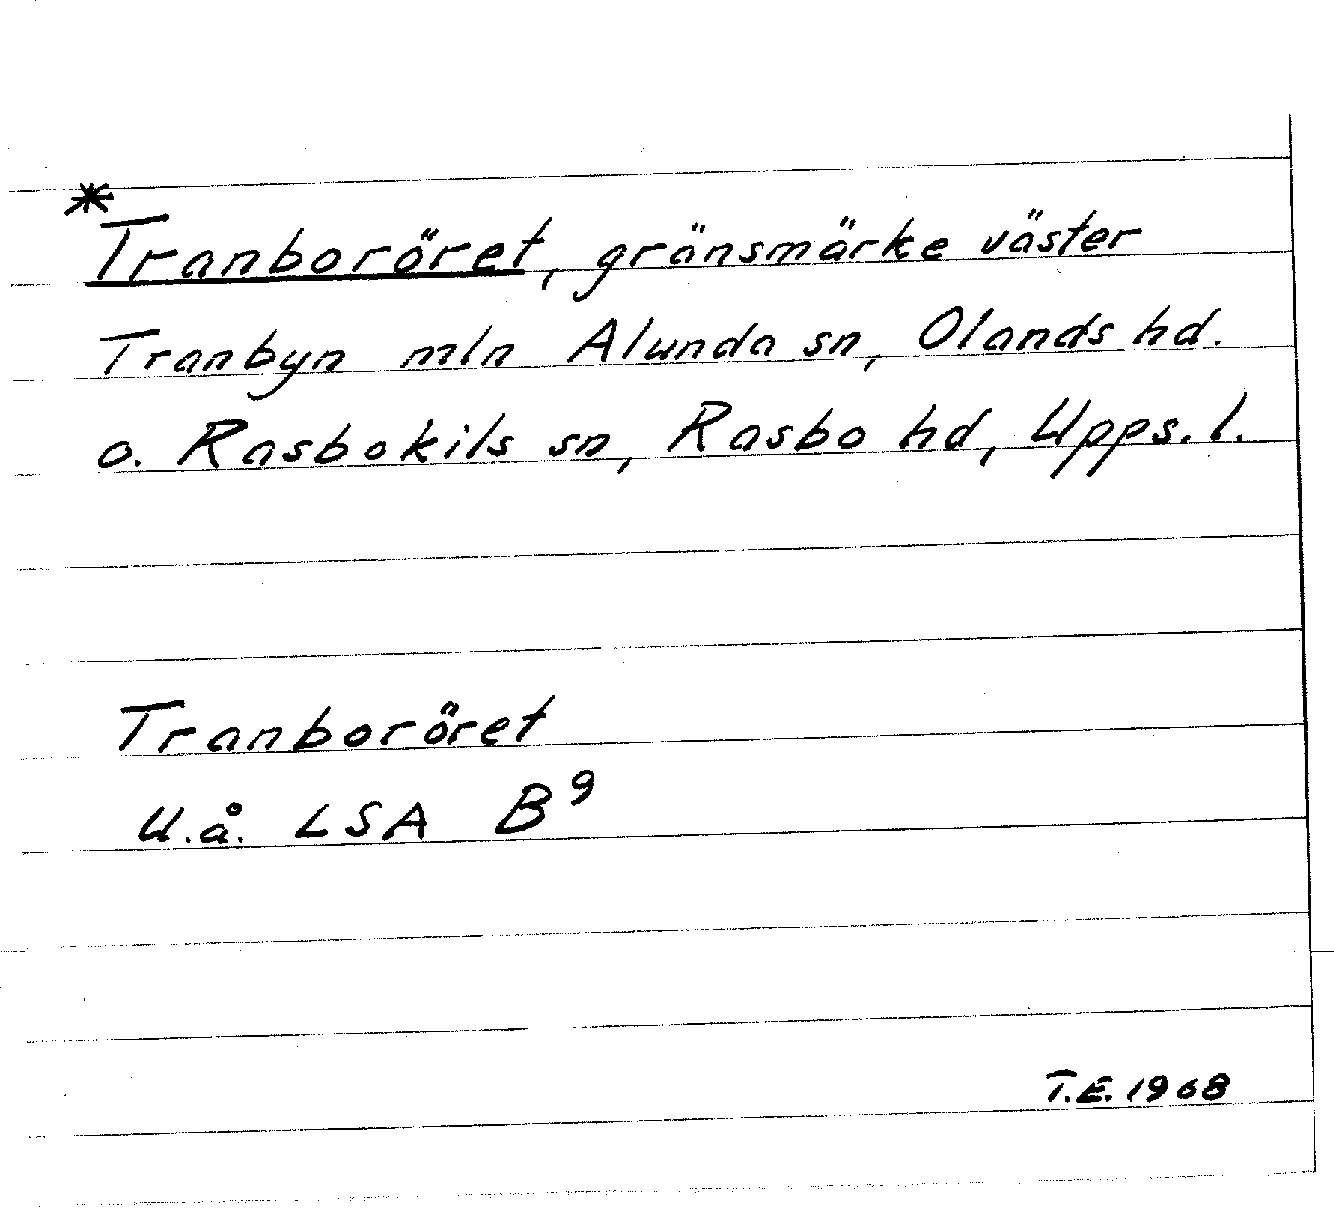 *Tranboröret, gränsmärke väster
Tranbyn mln Alunda sn, Olands hd.
o. Rasbokils sn, Rasbo hd, Upps. l.
Tranboröret
U.å. LSA B⁹
T.E. 1968